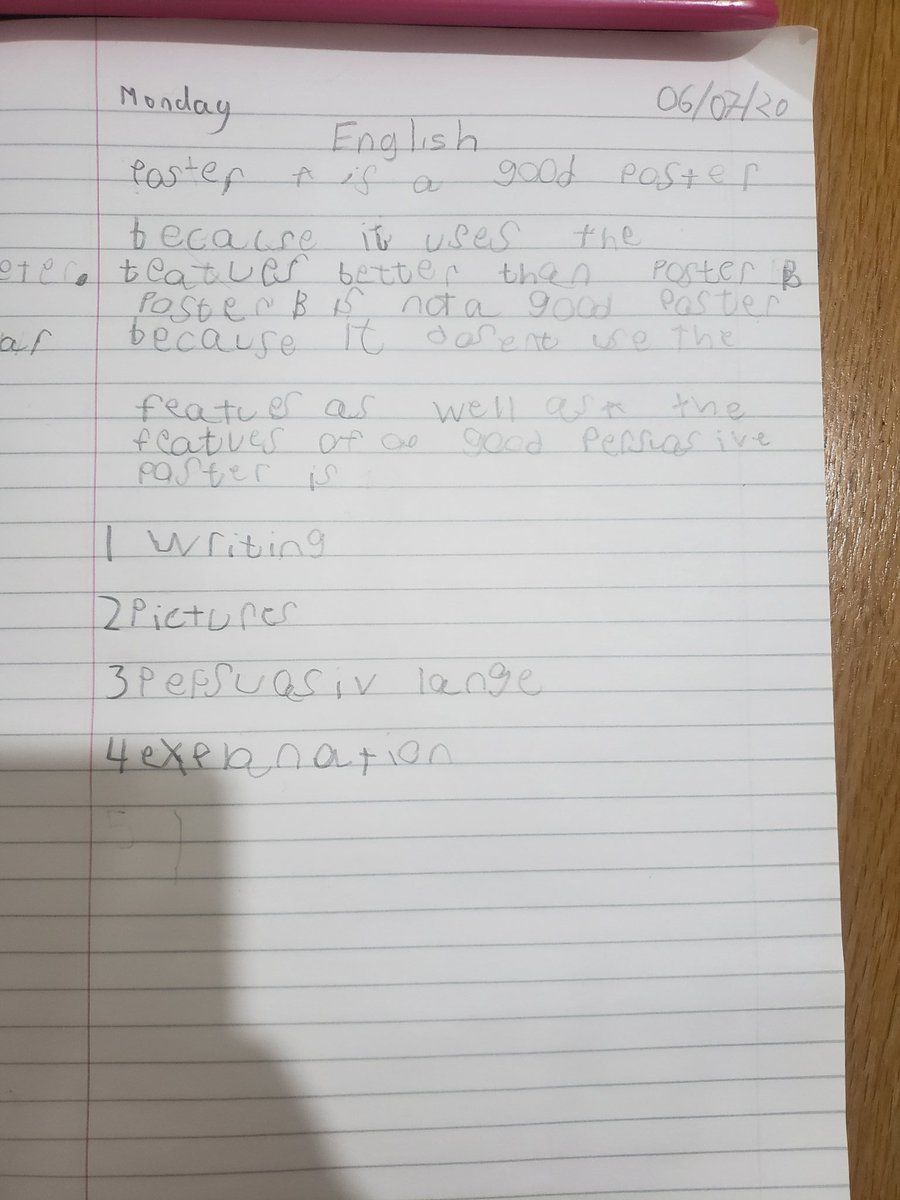 Monday 06/07/20
English
Poster A is a good Poster
because it uses the
eter. featues better than Poster B
Poster B is not a good Poster
ar because it dosent use the
featues as well as the
featues of a good Persuasive
Poster is
1 Writing
2 Pictures
3 Persuasiv lange
4 explanation
5)